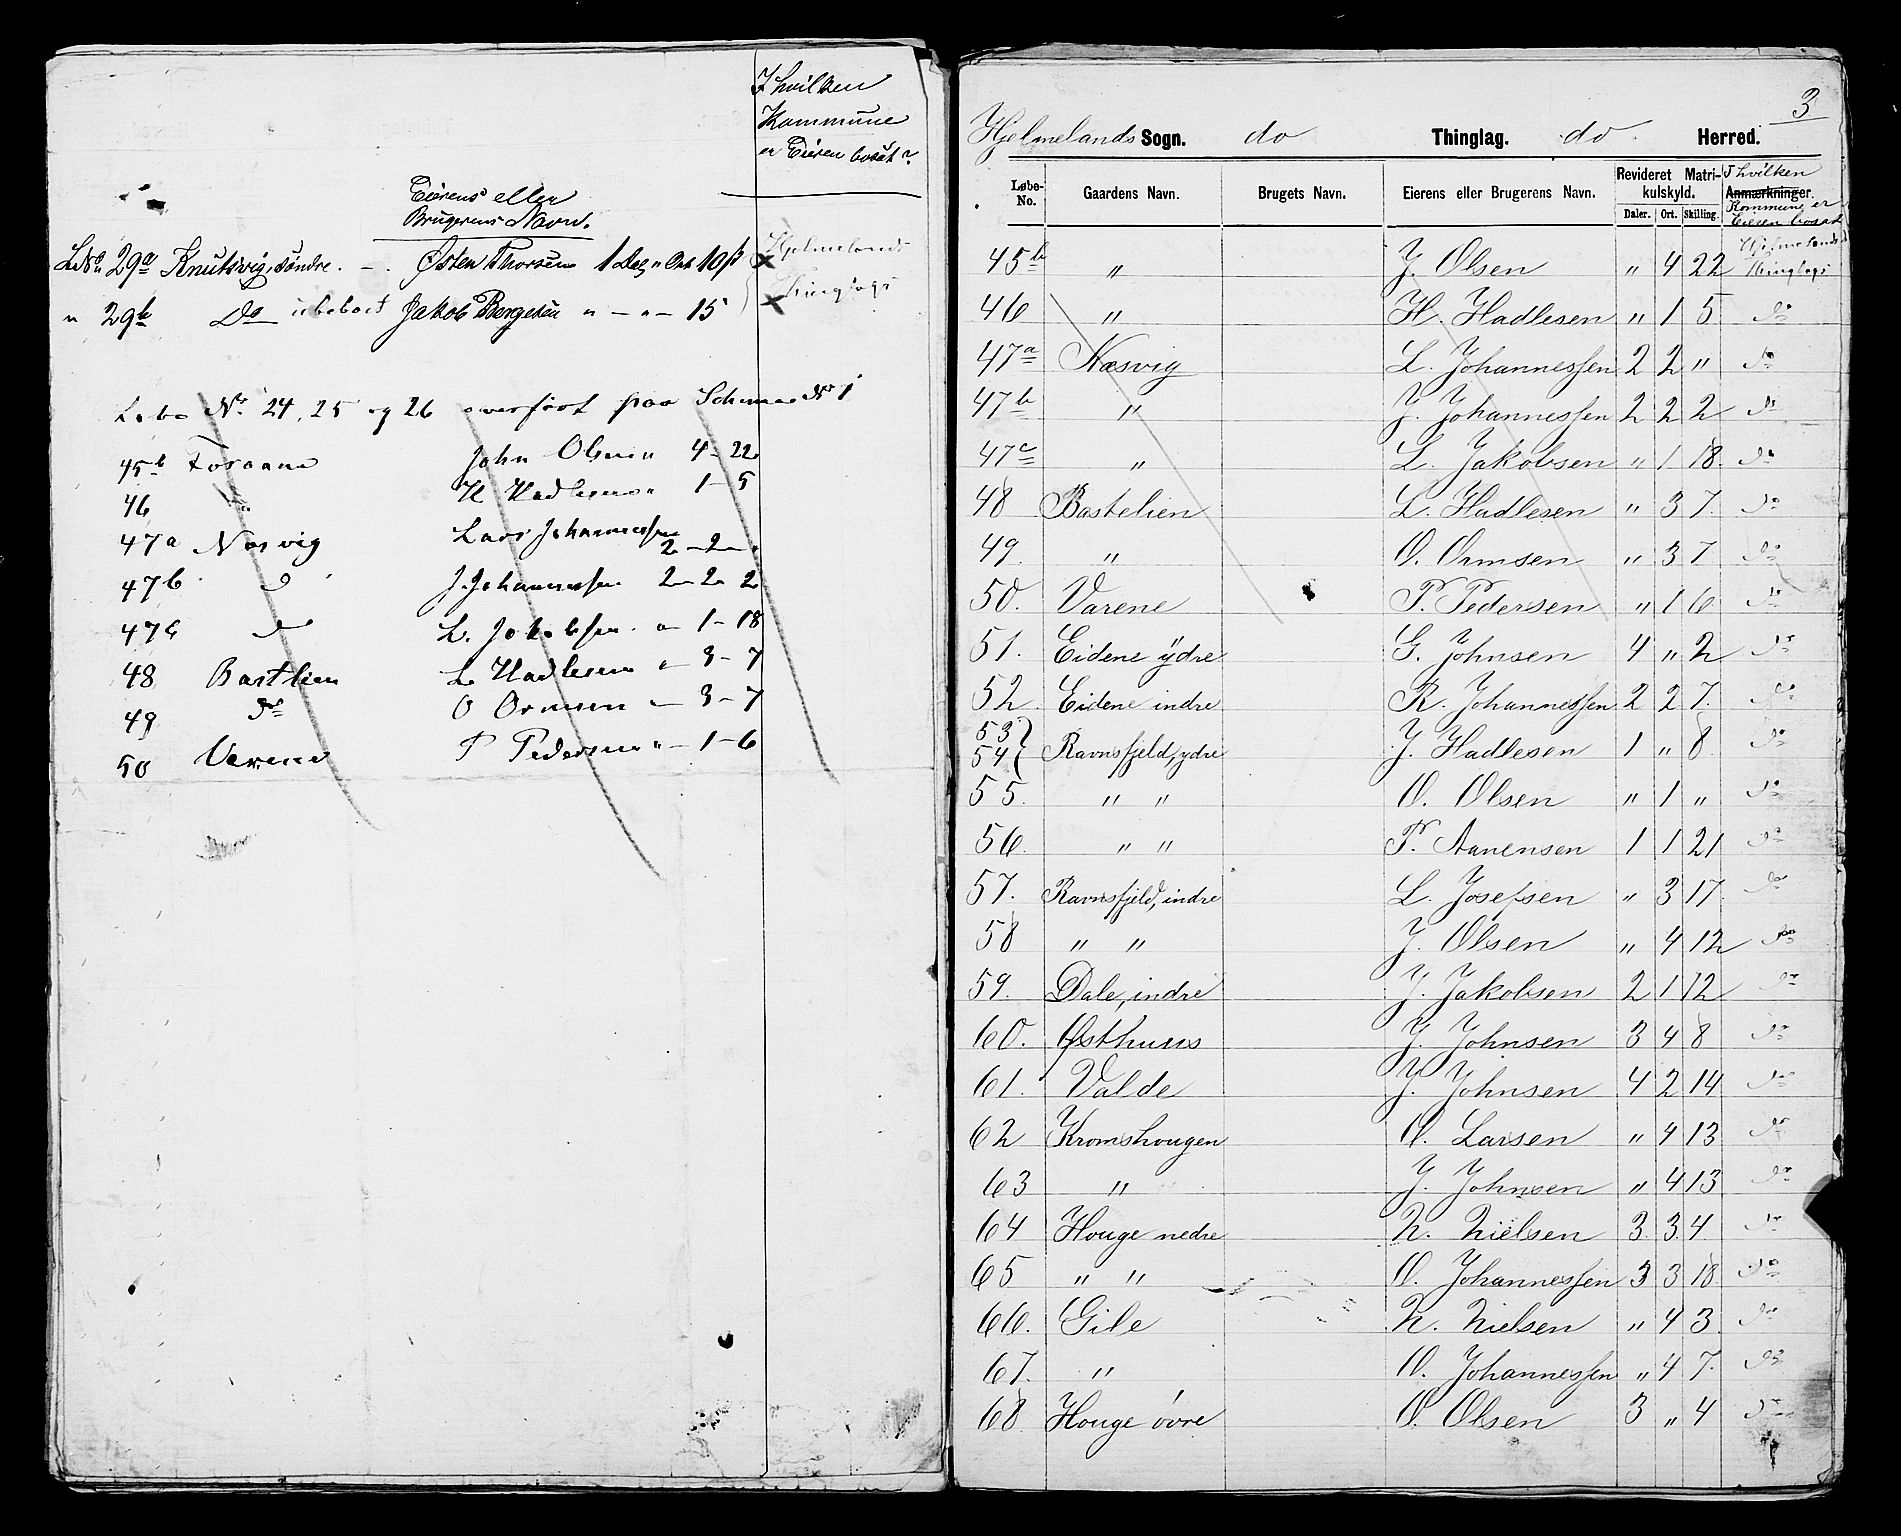 I hvilken
Kommune
er Eieren bosat?
Eierens eller
Brugerens Navn.
LNo 29a Knutsvig, søndre. - Østen Thorsen 1 Dal " Ort 10 ß Hjelmelands
" 29b Do ubeboet Jakob Bergesen " - " - 15 Thinglags
Løbe No 24, 25 og 26 overført paa Schema No 1
45b Fosaane John Olsen " 4 - 22
46 " H Hadlesen " 1 - 5
47a Nesvig Lars Johannessen 2 - 2 - "
47b do J. Johannessen 2 - 2 - 2
47c do L. Jakobsen " - 1 - 18
48 Bastlien L Hadlesen " - 3 - 7
49 do O Ormsen " - 3 - 7
50 Varene P Pedersen " - 1 - 6
3
Hjelmelands Sogn. do Thinglag. do. Herred.
Løbe-No. Gaardens Navn. Brugets Navn. Eierens eller Brugerens Navn. Revideret Matrikulskyld. Daler. Ort. Skilling. Anmærkninger. I hvilken Kommune er Eieren bosat
45b " J. Olsen " 4 22 Hjelmelands Thinglags
46 " H. Hadlesen " 1 5 do
47a Næsvig L. Johannessen 2 2 " do
47b " J. Johannessen 2 2 2 do
47c " L. Jakobsen " 1 18. do
48 Bastelien L. Hadlesen " 3 7. do
49. " O. Ormsen " 3 7 do
50. Varene P. Pedersen " 1 6 do
51. Eidene ydre G. Johnsen 4 " 2 do
52. Eidene indre R. Johannessen 2 2 7. do
53 } 54 } Ravnsfjeld, ydre J. Hadlesen 1 " 8 do
55. " " O. Olsen " 1 " do
56. " " P. Aanensen 1 1 21 do
57. Ravnsfjeld, indre L. Josefsen " 3 17. do
58 " " J. Olsen " 4 12 do
59. Dale, indre J. Jakobsen 2 1 12 do
60. Østhuus J. Johnsen 3 4 8 do
61. Valde J. Johnsen 4 2 14 do
62 Kromshougen O. Larsen " 4 13 do
63 " J. Johnsen " 4 13 do
64 Houge nedre N. Nielsen 3. 3. 4 do
65 " " O. Johannessen 3 3 18 do
66. Gile N. Nielsen " 4 3. do
67. " O. Johannessen " 4 7. do
68 Houge øvre O. Olsen 3 " 4 do